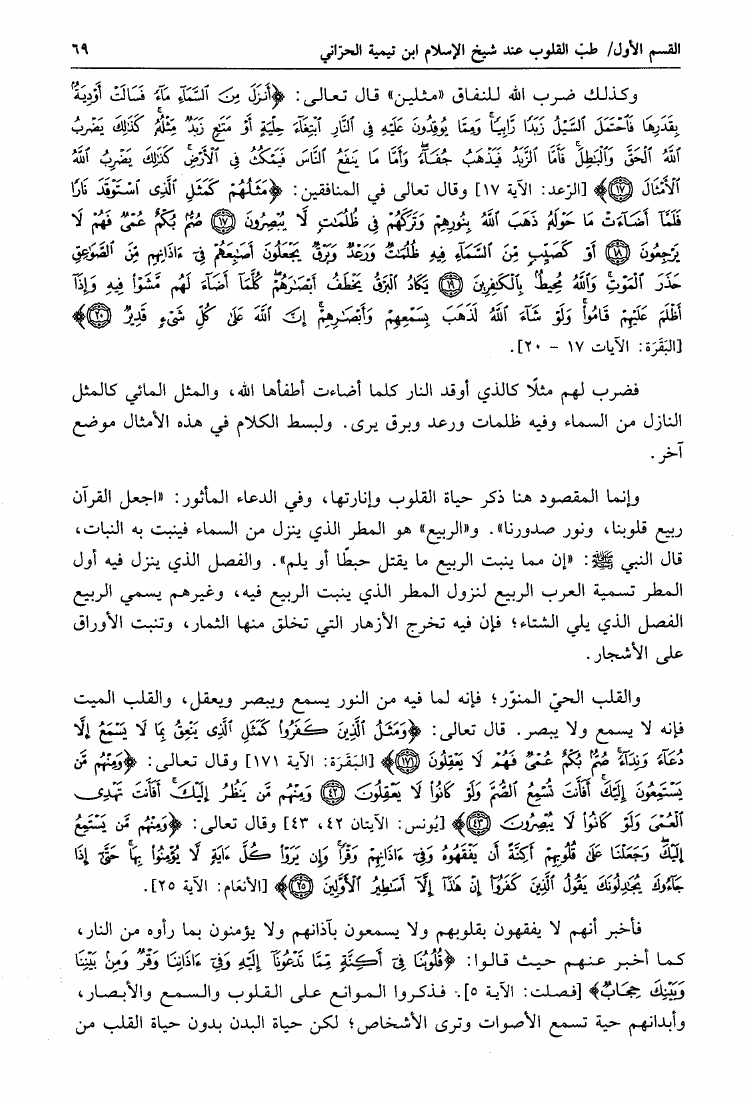 القسم الأول/ طبّ القلوب عند شيخ الإسلام ابن تيمية الحرّاني ٦٩
وكذلك ضرب الله للنفاق «مثلين» قال تعالى: ﴿أَنزَلَ مِنَ ٱلسَّمَآءِ مَآءً فَسَالَتْ أَوْدِيَةٌۢ
بِقَدَرِهَا فَٱحْتَمَلَ ٱلسَّيْلُ زَبَدًا رَّابِيًا ۚ وَمِمَّا يُوقِدُونَ عَلَيْهِ فِى ٱلنَّارِ ٱبْتِغَآءَ حِلْيَةٍ أَوْ مَتَٰعٍ زَبَدٌ مِّثْلُهُۥ ۚ كَذَٰلِكَ يَضْرِبُ
ٱللَّهُ ٱلْحَقَّ وَٱلْبَٰطِلَ ۚ فَأَمَّا ٱلزَّبَدُ فَيَذْهَبُ جُفَآءً ۖ وَأَمَّا مَا يَنفَعُ ٱلنَّاسَ فَيَمْكُثُ فِى ٱلْأَرْضِ ۚ كَذَٰلِكَ يَضْرِبُ ٱللَّهُ
ٱلْأَمْثَالَ ﴿١٧﴾﴾ [الرّعد: الآية ١٧] وقال تعالى في المنافقين: ﴿مَثَلُهُمْ كَمَثَلِ ٱلَّذِى ٱسْتَوْقَدَ نَارًا
فَلَمَّآ أَضَآءَتْ مَا حَوْلَهُۥ ذَهَبَ ٱللَّهُ بِنُورِهِمْ وَتَرَكَهُمْ فِى ظُلُمَٰتٍ لَّا يُبْصِرُونَ ﴿١٧﴾ صُمٌّۢ بُكْمٌ عُمْىٌ فَهُمْ لَا
يَرْجِعُونَ ﴿١٨﴾ أَوْ كَصَيِّبٍ مِّنَ ٱلسَّمَآءِ فِيهِ ظُلُمَٰتٌ وَرَعْدٌ وَبَرْقٌ يَجْعَلُونَ أَصَٰبِعَهُمْ فِىٓ ءَاذَانِهِم مِّنَ ٱلصَّوَٰعِقِ
حَذَرَ ٱلْمَوْتِ ۚ وَٱللَّهُ مُحِيطٌۢ بِٱلْكَٰفِرِينَ ﴿١٩﴾ يَكَادُ ٱلْبَرْقُ يَخْطَفُ أَبْصَٰرَهُمْ ۖ كُلَّمَآ أَضَآءَ لَهُم مَّشَوْا۟ فِيهِ وَإِذَآ
أَظْلَمَ عَلَيْهِمْ قَامُوا۟ ۚ وَلَوْ شَآءَ ٱللَّهُ لَذَهَبَ بِسَمْعِهِمْ وَأَبْصَٰرِهِمْ ۚ إِنَّ ٱللَّهَ عَلَىٰ كُلِّ شَىْءٍ قَدِيرٌ ﴿٢٠﴾﴾
[البَقَرَة: الآيات ١٧ - ٢٠].
فضرب لهم مثلًا كالذي أوقد النار كلما أضاءت أطفأها الله، والمثل المائي كالمثل
النازل من السماء وفيه ظلمات ورعد وبرق يرى. ولبسط الكلام في هذه الأمثال موضع
آخر.
وإنما المقصود هنا ذكر حياة القلوب وإنارتها، وفي الدعاء المأثور: «اجعل القرآن
ربيع قلوبنا، ونور صدورنا». و«الربيع» هو المطر الذي ينزل من السماء فينبت به النبات،
قال النبي ﷺ: «إن مما ينبت الربيع ما يقتل حبطًا أو يلم». والفصل الذي ينزل فيه أول
المطر تسمية العرب الربيع لنزول المطر الذي ينبت الربيع فيه، وغيرهم يسمي الربيع
الفصل الذي يلي الشتاء؛ فإن فيه تخرج الأزهار التي تخلق منها الثمار، وتنبت الأوراق
على الأشجار.
والقلب الحيّ المنوّر؛ فإنه لما فيه من النور يسمع ويبصر ويعقل، والقلب الميت
فإنه لا يسمع ولا يبصر. قال تعالى: ﴿وَمَثَلُ ٱلَّذِينَ كَفَرُوا۟ كَمَثَلِ ٱلَّذِى يَنْعِقُ بِمَا لَا يَسْمَعُ إِلَّا
دُعَآءً وَنِدَآءً ۚ صُمٌّۢ بُكْمٌ عُمْىٌ فَهُمْ لَا يَعْقِلُونَ ﴿١٧١﴾﴾ [البَقَرَة: الآية ١٧١] وقال تعالى: ﴿وَمِنْهُم مَّن
يَسْتَمِعُونَ إِلَيْكَ ۚ أَفَأَنتَ تُسْمِعُ ٱلصُّمَّ وَلَوْ كَانُوا۟ لَا يَعْقِلُونَ ﴿٤٢﴾ وَمِنْهُم مَّن يَنظُرُ إِلَيْكَ ۚ أَفَأَنتَ تَهْدِى
ٱلْعُمْىَ وَلَوْ كَانُوا۟ لَا يُبْصِرُونَ ﴿٤٣﴾﴾ [يُونس: الآيتان ٤٢، ٤٣] وقال تعالى: ﴿وَمِنْهُم مَّن يَسْتَمِعُ
إِلَيْكَ ۖ وَجَعَلْنَا عَلَىٰ قُلُوبِهِمْ أَكِنَّةً أَن يَفْقَهُوهُ وَفِىٓ ءَاذَانِهِمْ وَقْرًا ۚ وَإِن يَرَوْا۟ كُلَّ ءَايَةٍ لَّا يُؤْمِنُوا۟ بِهَا ۚ حَتَّىٰٓ إِذَا
جَآءُوكَ يُجَٰدِلُونَكَ يَقُولُ ٱلَّذِينَ كَفَرُوٓا۟ إِنْ هَٰذَآ إِلَّآ أَسَٰطِيرُ ٱلْأَوَّلِينَ ﴿٢٥﴾﴾ [الأنعَام: الآية ٢٥].
فأخبر أنهم لا يفقهون بقلوبهم ولا يسمعون بآذانهم ولا يؤمنون بما رأوه من النار،
كما أخبر عنهم حيث قالوا: ﴿قُلُوبُنَا فِىٓ أَكِنَّةٍ مِّمَّا تَدْعُونَآ إِلَيْهِ وَفِىٓ ءَاذَانِنَا وَقْرٌ وَمِنۢ بَيْنِنَا
وَبَيْنِكَ حِجَابٌ﴾ [فصلت: الآية ٥]. فذكروا الموانع على القلوب والسمع والأبصار،
وأبدانهم حية تسمع الأصوات وترى الأشخاص؛ لكن حياة البدن بدون حياة القلب من